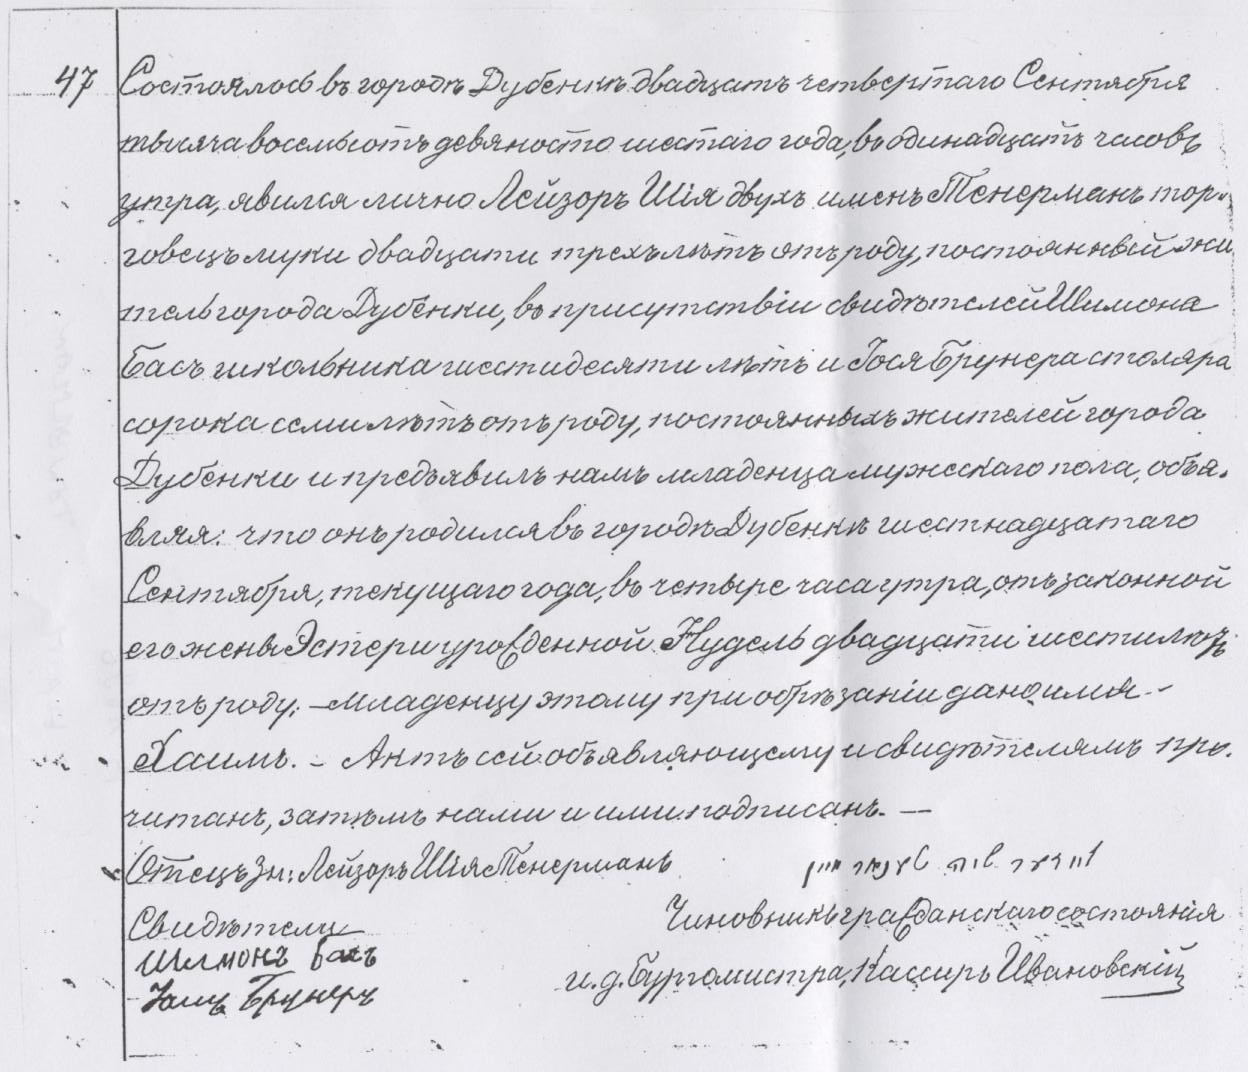 47 Состоялось въ городѣ Дубенкѣ двадцать четвертаго Сентября
тысяча восемьсотъ девяносто шестаго года, въ одинадцать часовъ
утра, явился лично Лейзоръ Шія двухъ именъ Тенерманъ тор-
говецъ муки двадцати трехъ лѣтъ отъ роду, постоянный жи
тель города Дубенки, въ присутствіи свидѣтелей Шимона
Басъ школьника шестидесяти лѣтъ и Іося Брунера столяра
сорока семи лѣтъ отъ роду, постоянныхъ жителей города
Дубенки и предъявилъ намъ младенца мужескаго пола, объя-
вляя: что онъ родился въ городѣ Дубенкѣ шестнадцатаго
Сентября, текущаго года, въ четыре часа утра, отъ законной
его жены Эстери урожденной Нудель двадцати шести лѣтъ
отъ роду. – Младенцу этому при обрѣзаніи дано имя –
Хаимъ. – Актъ сей объявляющему и свидѣтелямъ про-
читанъ, затѣмъ нами и ими подписанъ. —
Отецъ Зн: Лейзоръ Шія Тенерманъ
Чиновникъ гражданскаго состоянія
Свидѣтели
Шимонъ Басъ
и. д. Бургомистра, Кассиръ Ивановскій
Брунеръ